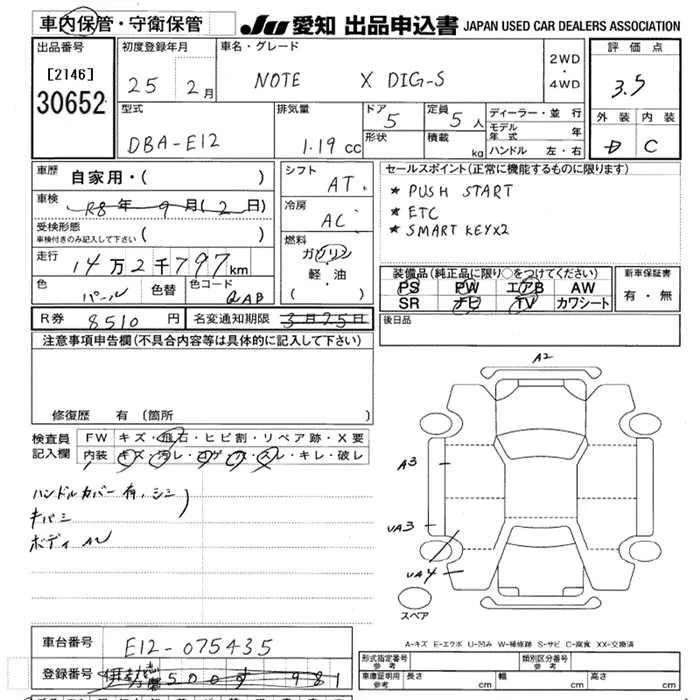 車内保管・守衛保管 JU 愛知 出品申込書 JAPAN USED CAR DEALERS ASSOCIATION
出品番号 初度登録年月 車名・グレード 評価点
[2146] 25 2月 NOTE X DIG-S 2WD・4WD 3.5
30652 型式 排気量 ドア 5 定員 5人 ディーラー・並行 外装 内装
DBA-E12 1.19cc 形状 積載 kg モデル年式 年 D C
ハンドル 左・右
車歴 自家用・( ) シフト AT セールスポイント(正常に機能するものに限ります)
車検 R8年 9月(2日) 冷房 AC * PUSH START
受検形態 * ETC
車検付きのみ記入して下さい ( ) 燃料 * SMART KEYX2
走行 14万2千797km ガソリン
軽・油 装備品(純正品に限り○をつけてください) 新車保証書
色 パール 色替 色コード QAB (・) PS PW エアB AW 有・無
SR ナビ TV カワシート
R券 8510円 名変通知期限 3月25日 後日品
注意事項申告欄(不具合内容等は具体的に記入して下さい)
A2
修復歴 有(箇所 )
検査員 FW キズ・飛石・ヒビ割・リペア跡・X要
記入欄 内装 キズ・汚レ・コゲ・穴・スレ・キレ・破レ
A3
ハンドルカバー有、シミ
キバミ UA3
ボディAU
UA4
スペア
A-キズ E-エクボ U-凹み W-補修跡 S-サビ C-腐食 XX-交換済
車台番号 E12-075435
形式指定番号 参考 類別区分番号 参考
登録番号 500 981 車庫証明用 参考 長さ cm 幅 cm 高さ cm